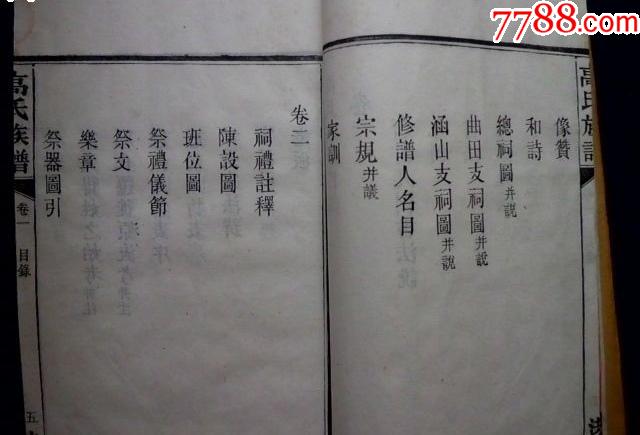 7788.com
高氏族譜
像贊
和詩
總祠圖并說
曲田支祠圖并說
涵山支祠圖并說
修譜人名目
宗規并議
家訓
卷二
祠禮註釋
陳設圖
班位圖
祭禮儀節
祭文
樂章
祭器圖引
高氏族譜
卷一
目錄
五